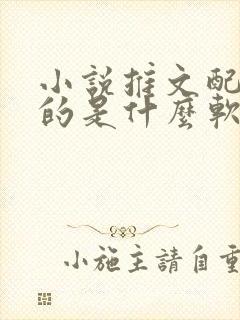 小說推文配
的是什麼軟
小施主請自重